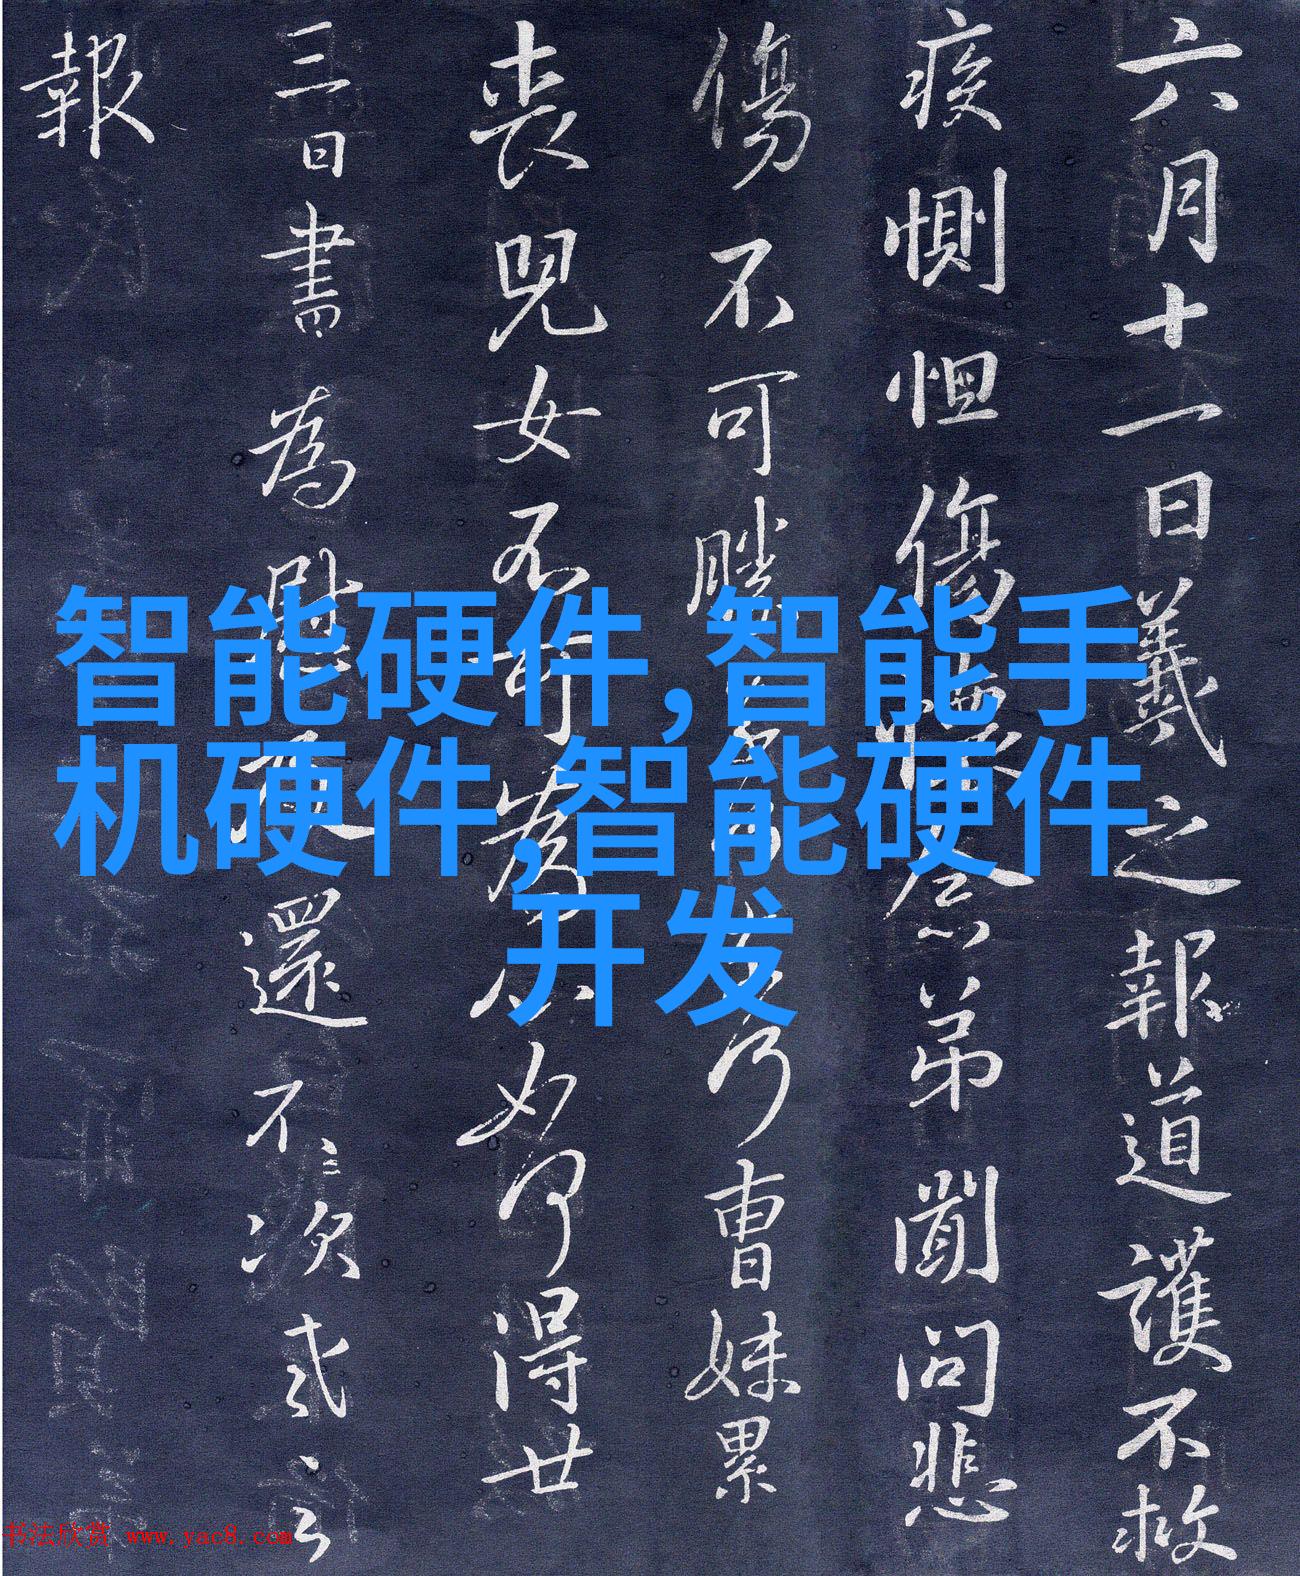 六月十一日羲之報道護不救
疾惻怛傷懷念弟聞問悲
傷不可勝乃曹妹累
喪兒女不可為心如何得廿
三日書為慰及還不次
報
智能硬件,智能手
机硬件,智能硬件
开发
书法欣赏 www.yac8.com